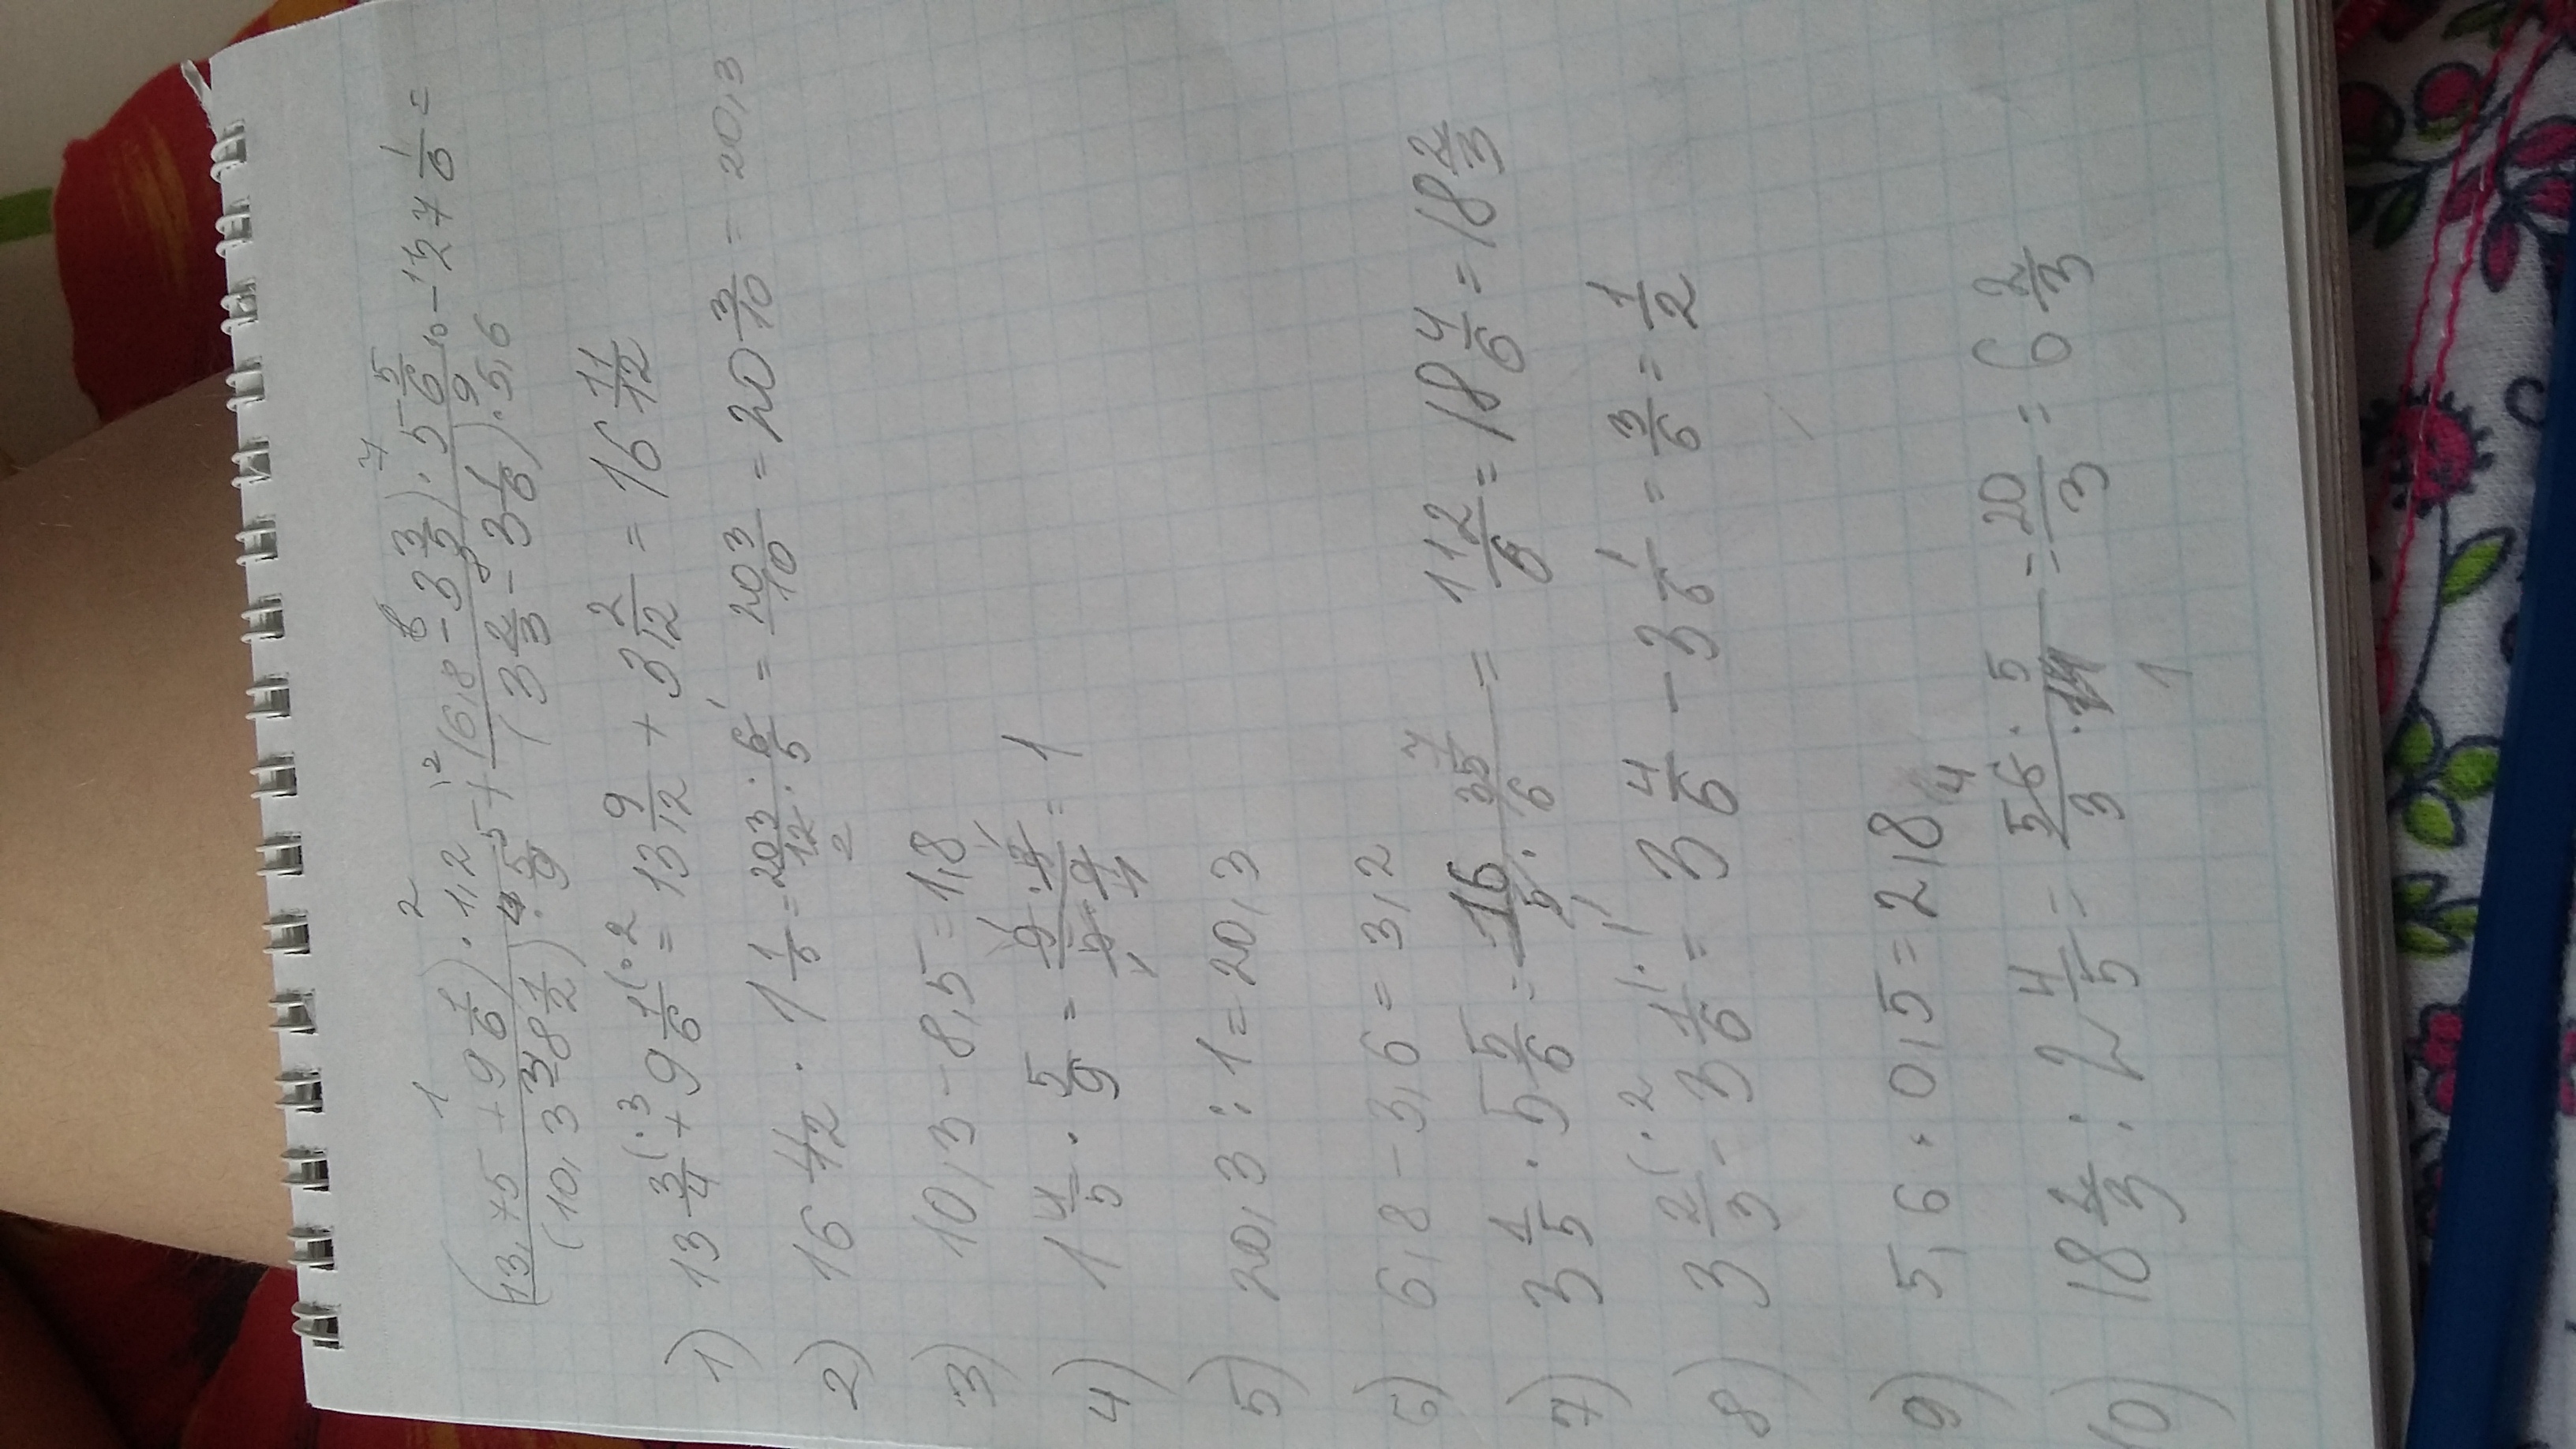 (13,75 + 9 1/6) · 1,2 / (10,3 - 8 1/2) · 5/9 + (6,8 - 3 3/5) · 5 5/6 / (3 2/3 - 3 1/6) · 5,6 - 27 1/6 =
1) 13 3/4 (·3 + 9 1/6 (·2 = 13 9/12 + 3 2/12 = 16 11/12
2) 16 11/12 · 1 1/5 = 203/12 · 6/5 = 203/10 = 20 3/10 = 20,3
3) 10,3 - 8,5 = 1,8
4) 1 4/5 · 5/9 = 9 · 5 / 5 · 9 = 1
5) 20,3 : 1 = 20,3
6) 6,8 - 3,6 = 3,2
7) 3 1/5 · 5 5/6 = 16/5 · 35/6 = 112/6 = 18 4/6 = 18 2/3
8) 3 2/3 (·2 - 3 1/6 (·1 = 3 4/6 - 3 1/6 = 3/6 = 1/2
9) 5,6 · 0,5 = 2,8
10) 18 2/3 : 2 4/5 = 56 · 5 / 3 · 14 = 20/3 = 6 2/3